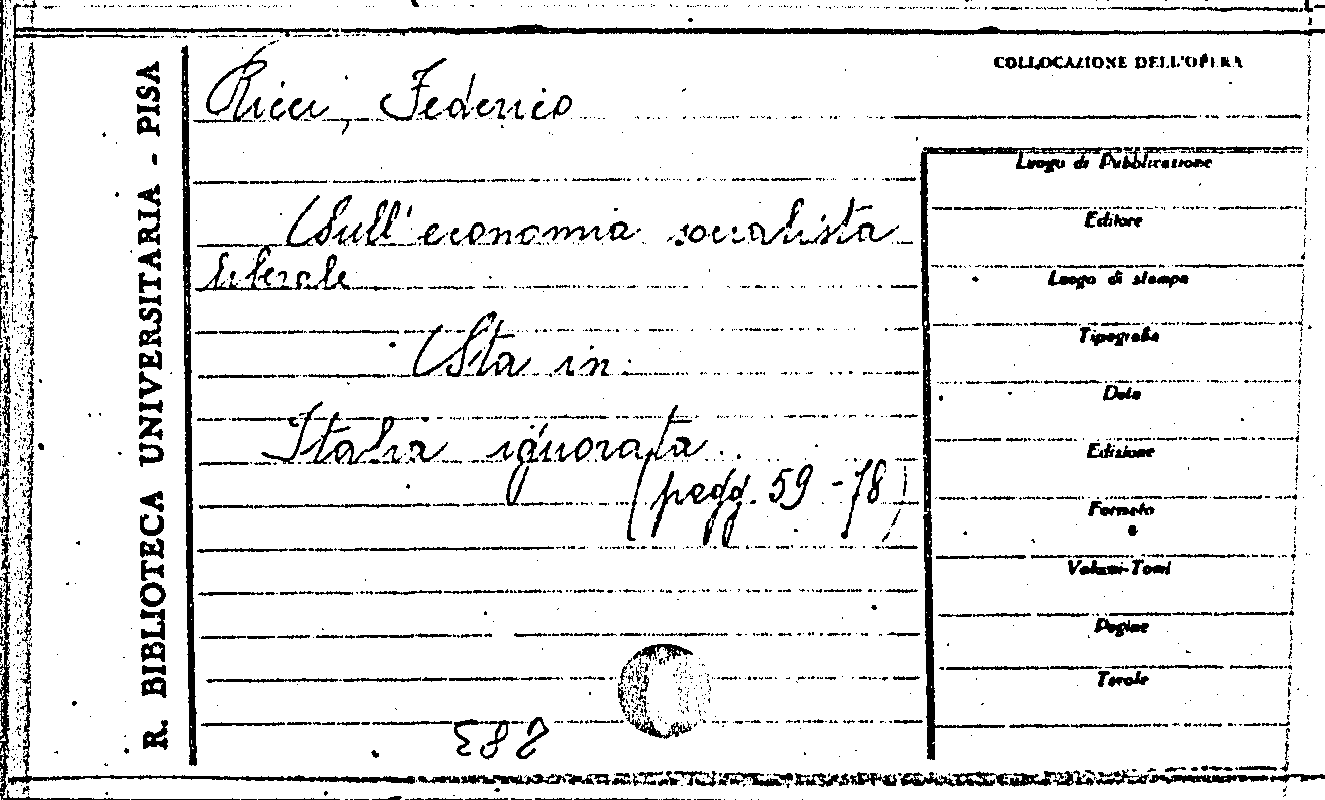 R. BIBLIOTECA UNIVERSITARIA - PISA
COLLOCAZIONE DELL'OPERA
Ricci, Federico
Sull'economia socialista
liberale
Sta in:
Italia ignorata
(pagg. 59-78)
Luogo di Pubblicazione
Editore
Luogo di stampa
Tipografia
Data
Edizione
Formato
8
Volumi-Tomi
Pagine
Tavole
283